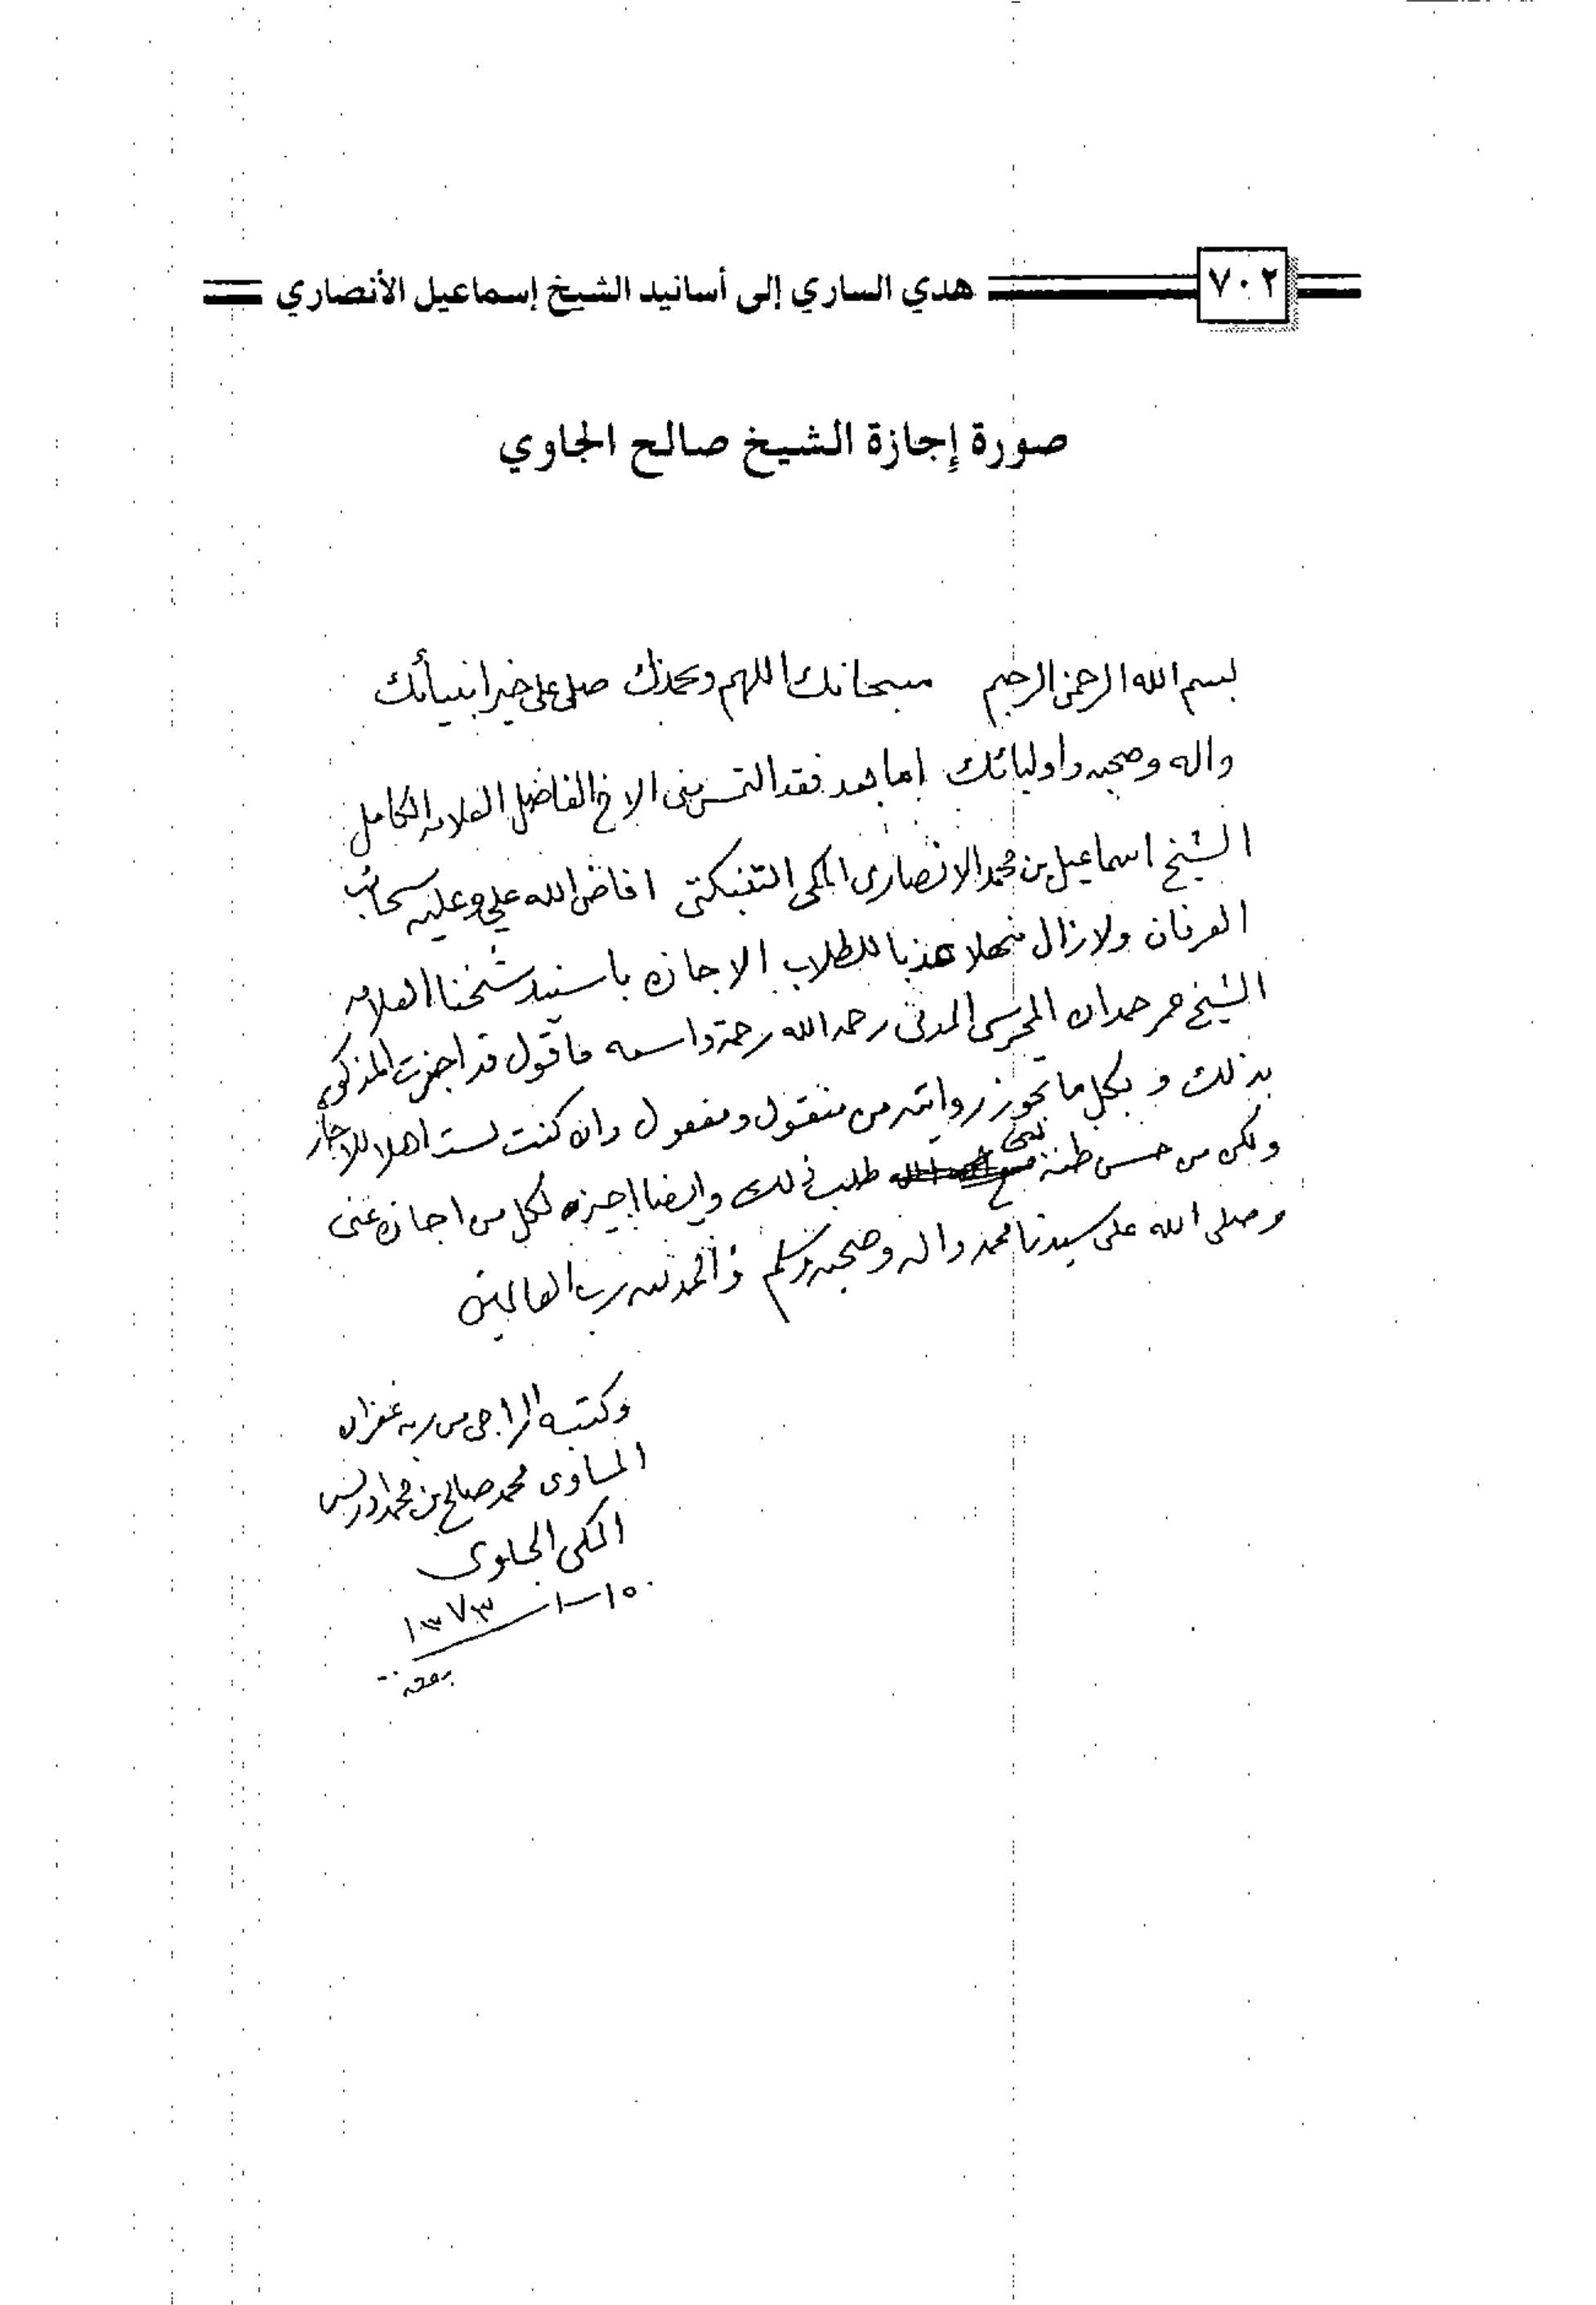 ٧٠٢
هدي الساري إلى أسانيد الشيخ إسماعيل الأنصاري
صورة إجازة الشيخ صالح الجاوي
بسم الله الرحمن الرحيم سبحانك اللهم وبحمدك صلى على خير انبيائك
واله وصحبه واوليائك اما بعد فقد التمس منى الاخ الفاضل العلامه الكامل
الشيخ اسماعيل بن محمد الانصارى المكى التنبكتى افاض الله علي وعليه سحائب
العرفان ولازال منهلا عذبا للطلاب الاجازه باسنيد شيخنا العلامه
الشيخ عمر حمدان المحرسى المدنى رحمه الله رحمة واسعه فاقول قد اجزت المذكور
بذلك و بكل ما تجوز روايته من منقول ومعقول وان كنت لست اهلا للاجازه
ولكن من حسن ظنه بى طلب ذلك وايضا اجيزه لكل من اجازه عنى
وصلى الله على سيدنا محمد واله وصحبه وسلم والحمد لله رب العالمين
وكتبه الراجى من ربه غفران
المساوى محمد صالح بن محمد ادريس
المكى الجاوى
١٥-١-١٣٧٣